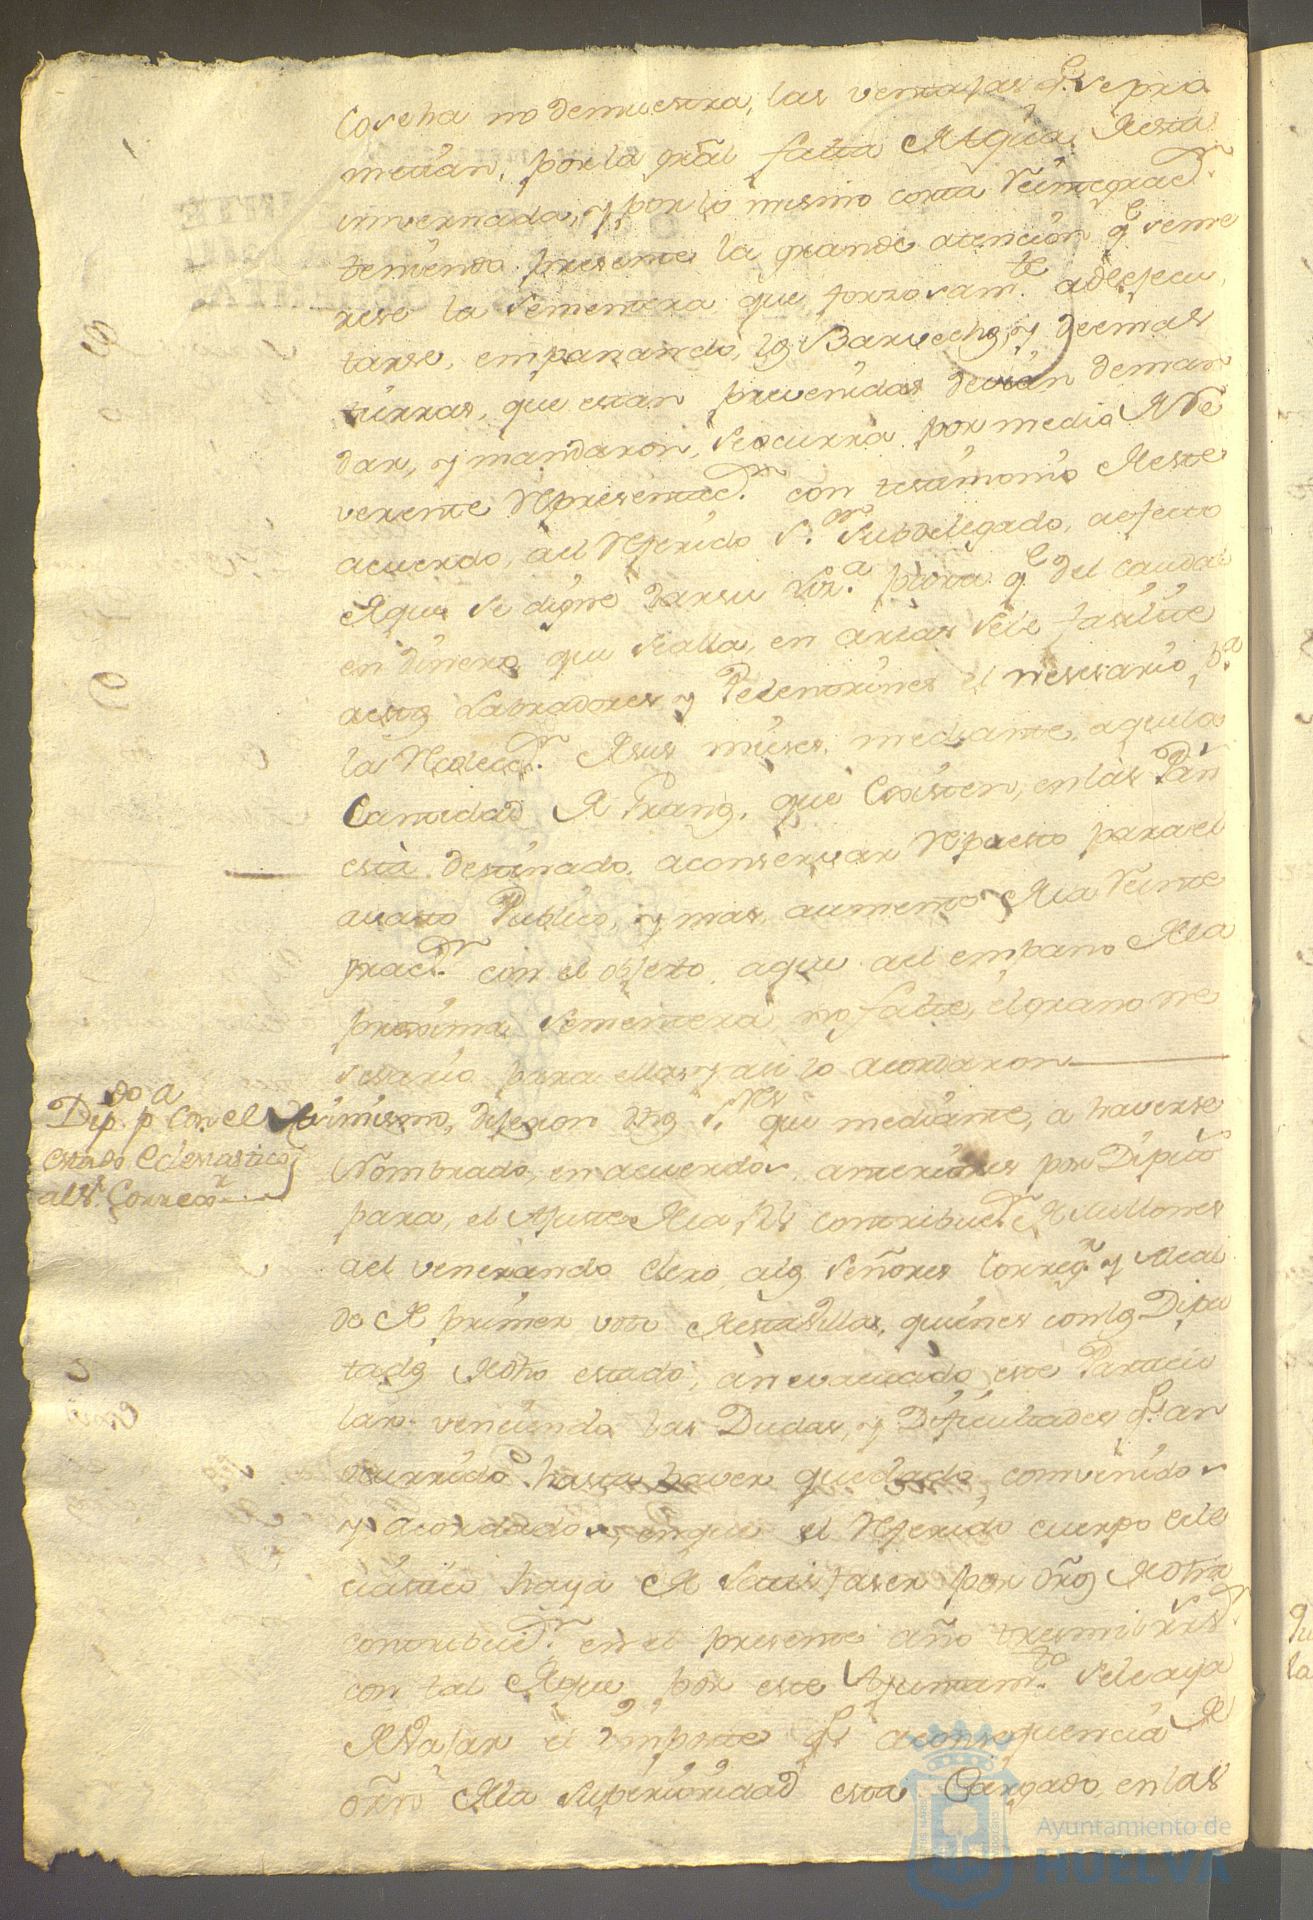 Cosecha no demuestra, las ventajas q.e se pro
metian, por la gral falta de Agua de esta
invernada, y por lo mismo corta Reintegrac.n
teniendo presente la grande atencion q.e se me
rese la Sementera que forzosam.te a de ejecu
tarse, empanando, los Barvechos, y demas
tierras, que estan prevenidas devian de man
dar, y mandaron, se ocurra por medio de Re
verente Representac.n con testimonio de este
acuerdo, al Referido S.or Subdelegado, a efecto
de que se digne dar su liz.a para q.e del caudal
en dinero que se alla, en arcas se le fasilite
a estos Labradores y Pelentrines el nesesario, p.a
la Recolecc.n de sus mieses, mediante, a que la
Cantidad de Granos, que Existen, en las Pan
està destinado, a conservar Repuesto para el
avasto Publico, y mas aumento de la Reinte
grac.n con el objeto, a que al empano de la
procsima Sementera, no falte, el grano ne
sesario para ellas y asi lo acordaron
Dip.do p.a Con el
Estado Eclesiastico
al S.r Correx.r
Asimismo, dijeron dhos S.res que mediante, a haverse
Nombrado, en acuerdos, anteriores por Diputo
para, el Ajuste de la R.l contribuc.n de Millones
del venerando clero, a los Señores Correg.r y Alcal
de de primer voto de esta Villa, quienes con los Dipu
tados de dho estado, an evacuado, este Particu
lar venciendo las Dudas, y Dificultades q.e an
ocurrido hasta haver quedado, convenidos
y acordados, en que el Referido cuerpo Ecle
ciastico haya de Satisfaser por dros de dha
contribuc.n en el presente año tres mil rrs
con tal de que por este Ayuntam.to se le aya
de Vajar el importe q.e a consequencia de
orn de la Superioridad esta Cargado, en las
Ayuntamiento de
HUELVA